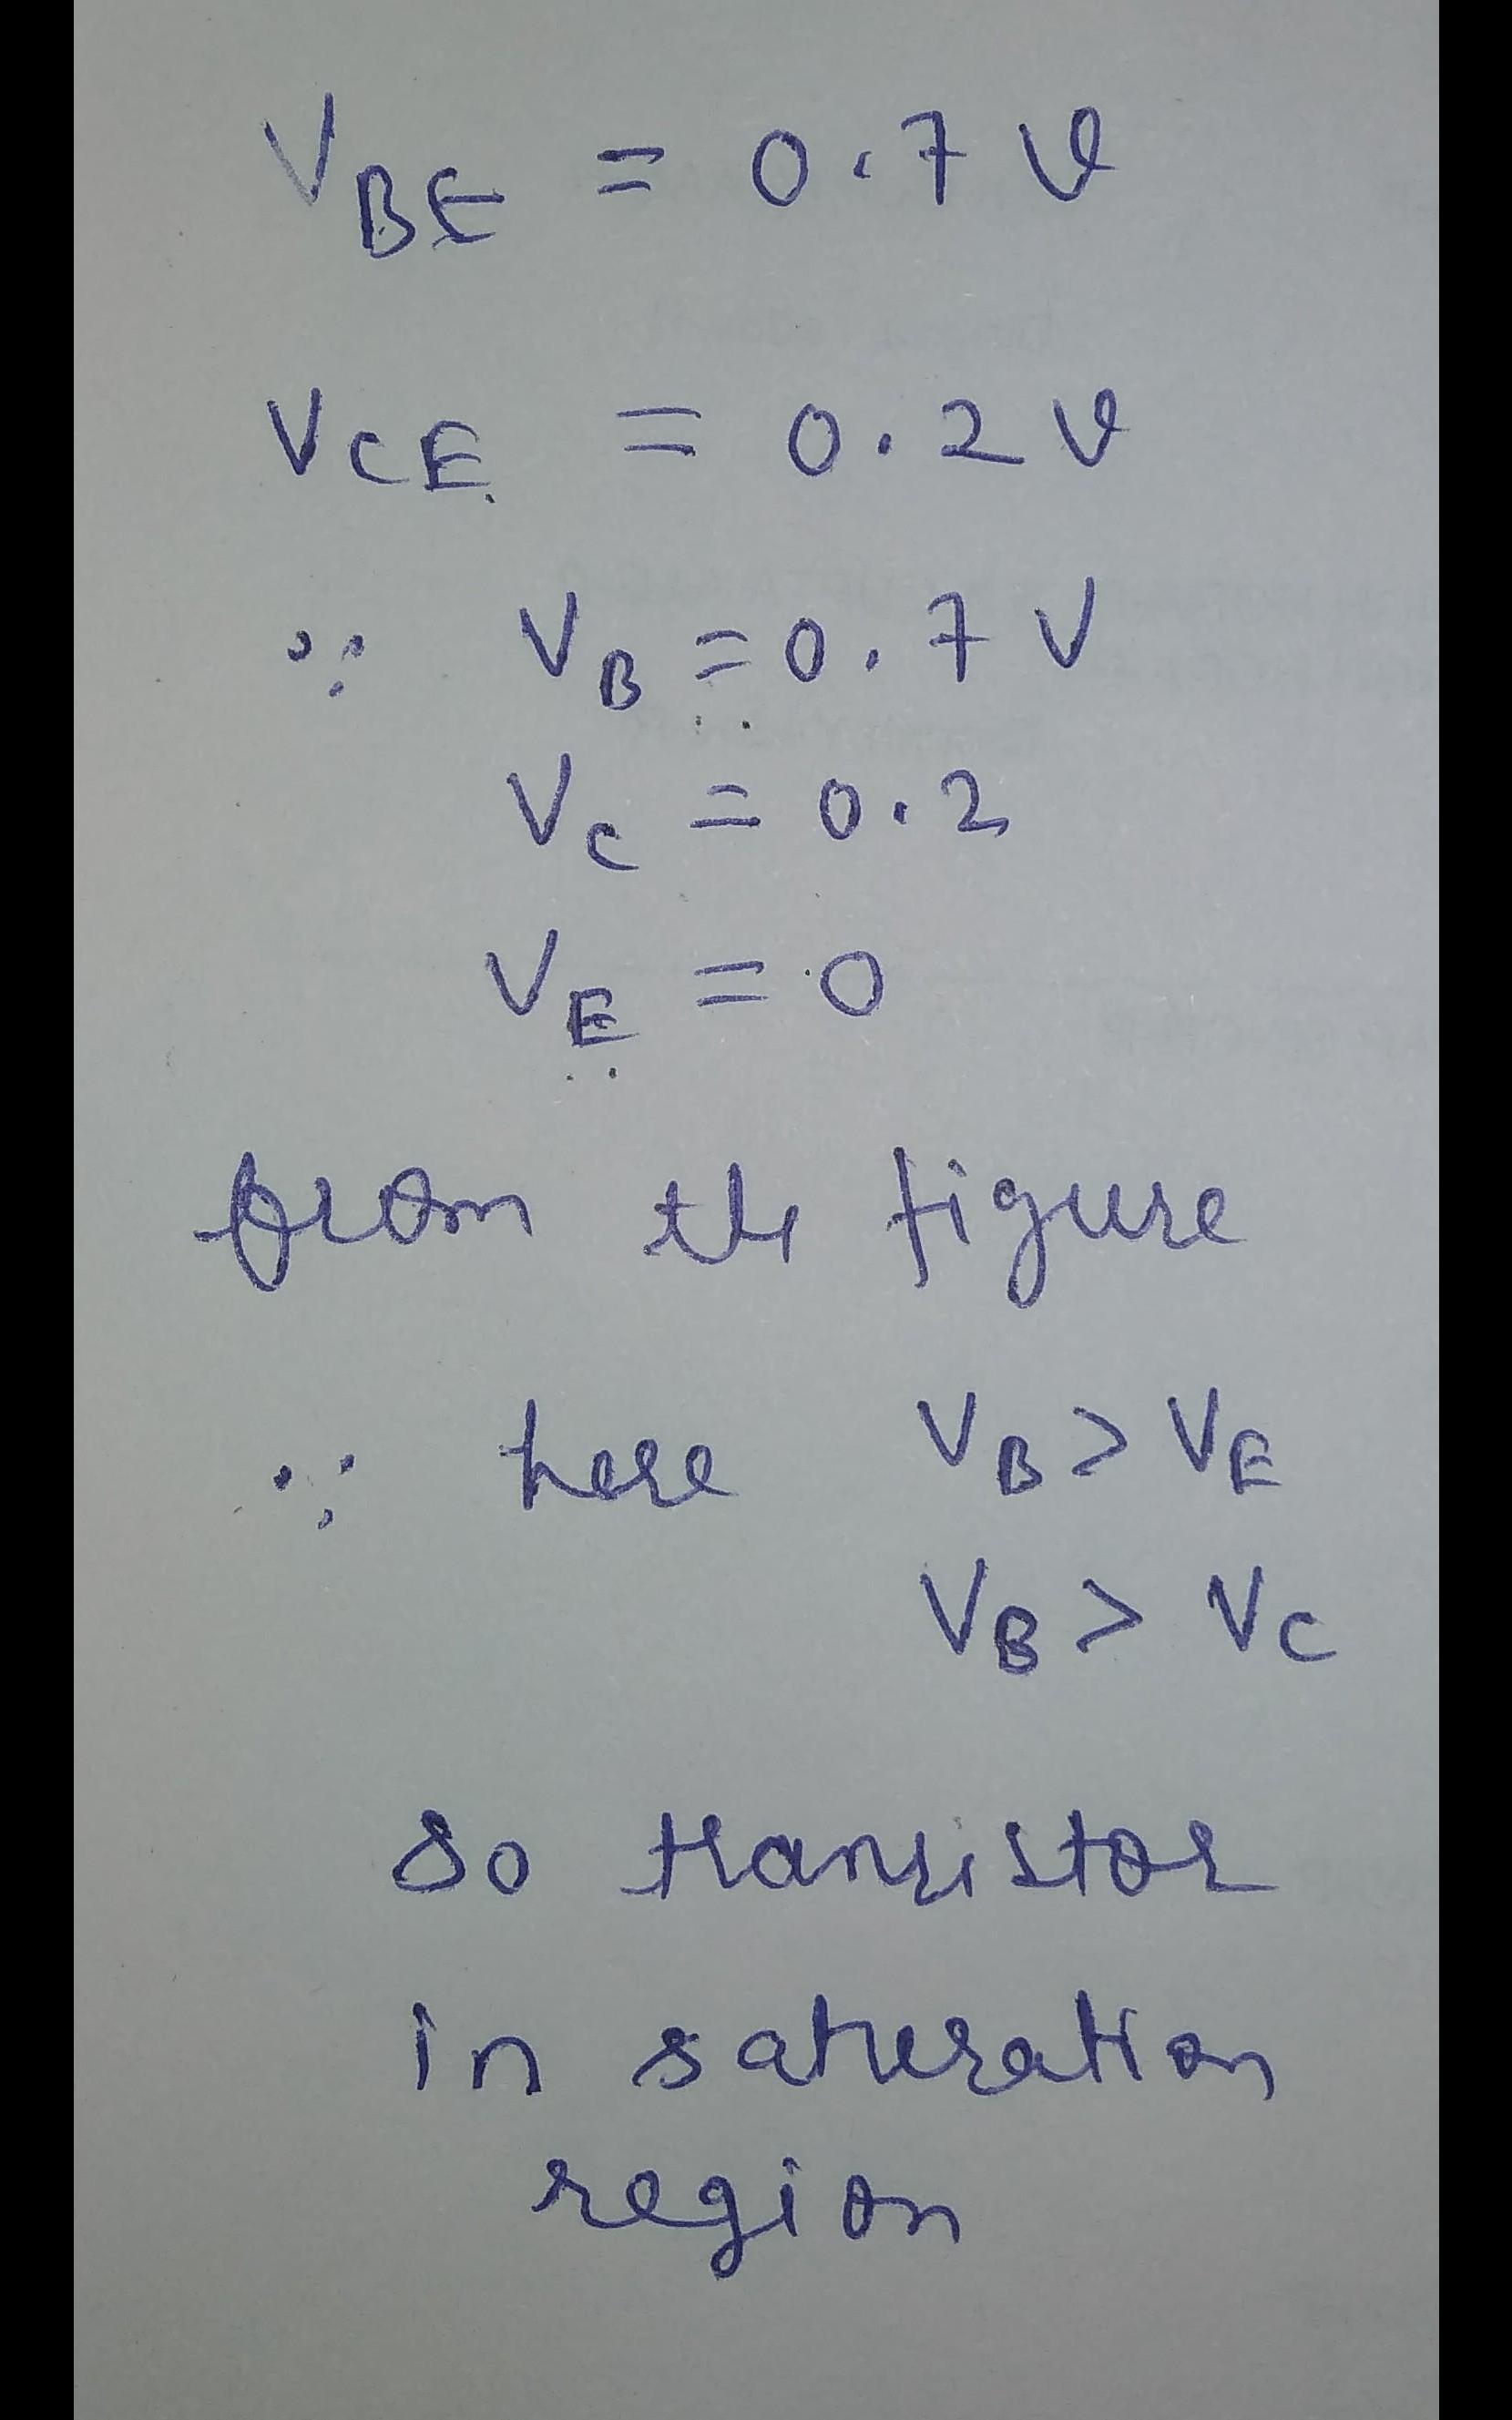 V_BE = 0.7 V
V_CE = 0.2 V
∵ V_B = 0.7 V
V_C = 0.2
V_E = 0
from the figure
∵ here V_B > V_E
V_B > V_C
so tranristor
in saturation
region